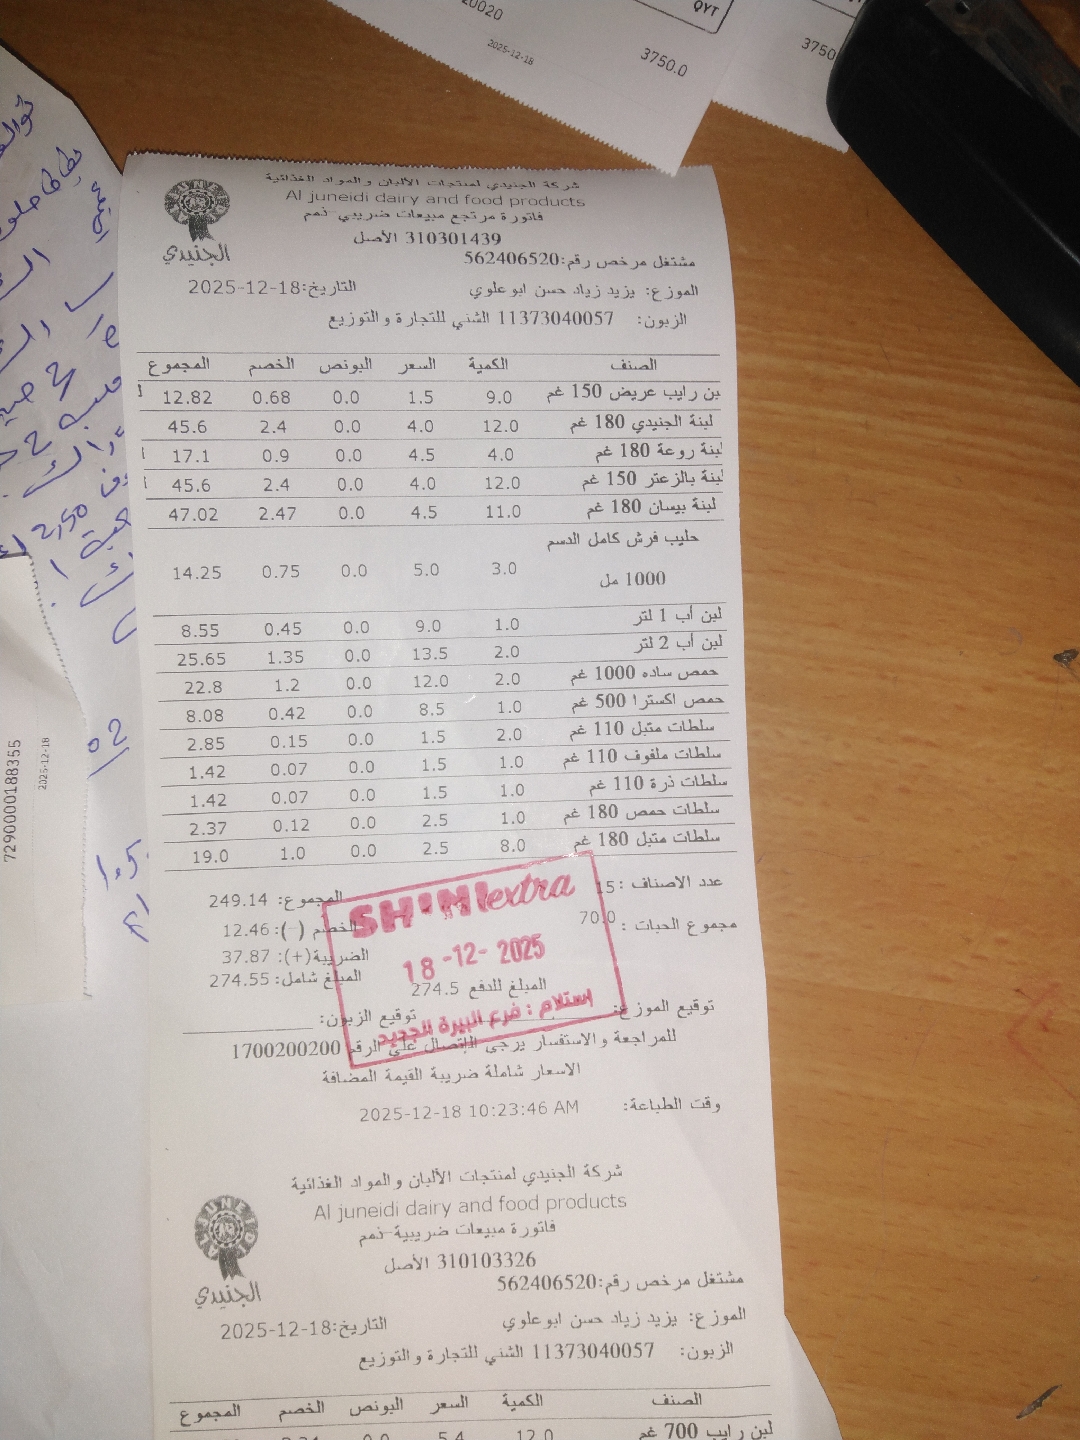 20020
QYT
2025-12-18
3750.0
3750
شركة الجنيدي لمنتجات الألبان والمواد الغذائية
Al juneidi dairy and food products
فاتورة مرتجع مبيعات ضريبي-ذمم
310301439 الأصل
الجنيدي
مشتغل مرخص رقم:562406520
الموزع: يزيد زياد حسن ابو علوي التاريخ:18-12-2025
الزبون: 11373040057 الشني للتجارة والتوزيع
الصنف الكمية السعر البونص الخصم المجموع
بن رايب عريض 150 غم 9.0 1.5 0.0 0.68 12.82
لبنة الجنيدي 180 غم 12.0 4.0 0.0 2.4 45.6
لبنة روعة 180 غم 4.0 4.5 0.0 0.9 17.1
لبنة بالزعتر 150 غم 12.0 4.0 0.0 2.4 45.6
لبنة بيسان 180 غم 11.0 4.5 0.0 2.47 47.02
حليب فرش كامل الدسم
1000 مل 3.0 5.0 0.0 0.75 14.25
لبن أب 1 لتر 1.0 9.0 0.0 0.45 8.55
لبن أب 2 لتر 2.0 13.5 0.0 1.35 25.65
حمص ساده 1000 غم 2.0 12.0 0.0 1.2 22.8
حمص اكسترا 500 غم 1.0 8.5 0.0 0.42 8.08
سلطات متبل 110 غم 2.0 1.5 0.0 0.15 2.85
سلطات ملفوف 110 غم 1.0 1.5 0.0 0.07 1.42
سلطات ذرة 110 غم 1.0 1.5 0.0 0.07 1.42
سلطات حمص 180 غم 1.0 2.5 0.0 0.12 2.37
سلطات متبل 180 غم 8.0 2.5 0.0 1.0 19.0
عدد الاصناف : 15 المجموع: 249.14
مجموع الحبات : 70.0 الخصم (-): 12.46
الضريبة(+): 37.87
المبلغ شامل: 274.55
المبلغ للدفع 274.5
SHINI extra
18-12-2025
استلام : فرع البيرة الجديد
توقيع الموزع: توقيع الزبون:
للمراجعة والاستفسار يرجى الإتصال على الرقم 1700200200
الاسعار شاملة ضريبة القيمة المضافة
وقت الطباعة: 2025-12-18 10:23:46 AM
شركة الجنيدي لمنتجات الألبان والمواد الغذائية
Al juneidi dairy and food products
فاتورة مبيعات ضريبية-ذمم
310103326 الأصل
الجنيدي
مشتغل مرخص رقم:562406520
الموزع: يزيد زياد حسن ابو علوي التاريخ:18-12-2025
الزبون: 11373040057 الشني للتجارة والتوزيع
الصنف الكمية السعر البونص الخصم المجموع
لبن رايب 700 غم 12.0 5.4 0.0
7290000188355
2025-12-18